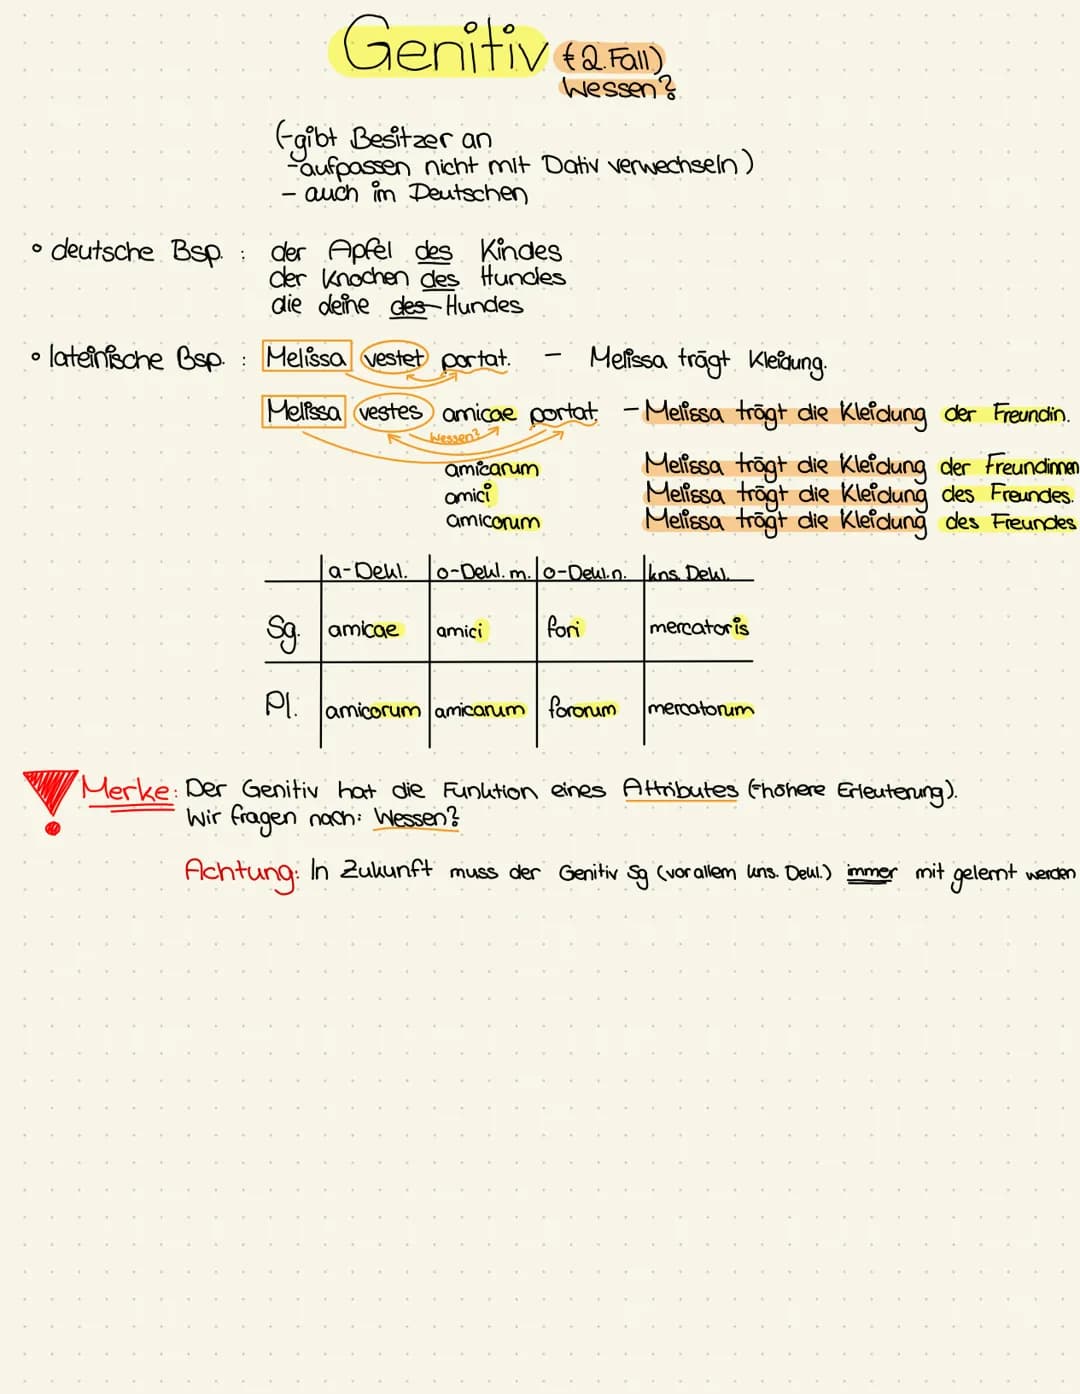 Genitiv (=2. Fall)
Wessen?
(-gibt Besitzer an
-aufpassen nicht mit Dativ verwechseln)
- auch im Deutschen
• deutsche Bsp. : der Apfel des Kindes
der Knochen des Hundes
die deine des Hundes
• lateinische Bsp. : Melissa vestet portat. - Melissa trägt Kleidung.
Melissa vestes amicae portat - Melissa trägt die Kleidung der Freundin.
Wessen?
amicarum Melissa trägt die Kleidung der Freundinnen
amici Melissa trägt die Kleidung des Freundes.
amicorum Melissa trägt die Kleidung des Freundes
a-Dekl. o-Dekl. m. o-Dekl. n. kns. Dekl.
Sg. amicae amici fori mercatoris
Pl. amicorum amicarum fororum mercatorum
Merke: Der Genitiv hat die Funktion eines Attributes (=höhere Erleuterung).
Wir fragen nach: Wessen?
Achtung: In Zukunft muss der Genitiv Sg (vor allem kns. Dekl.) immer mit gelernt werden